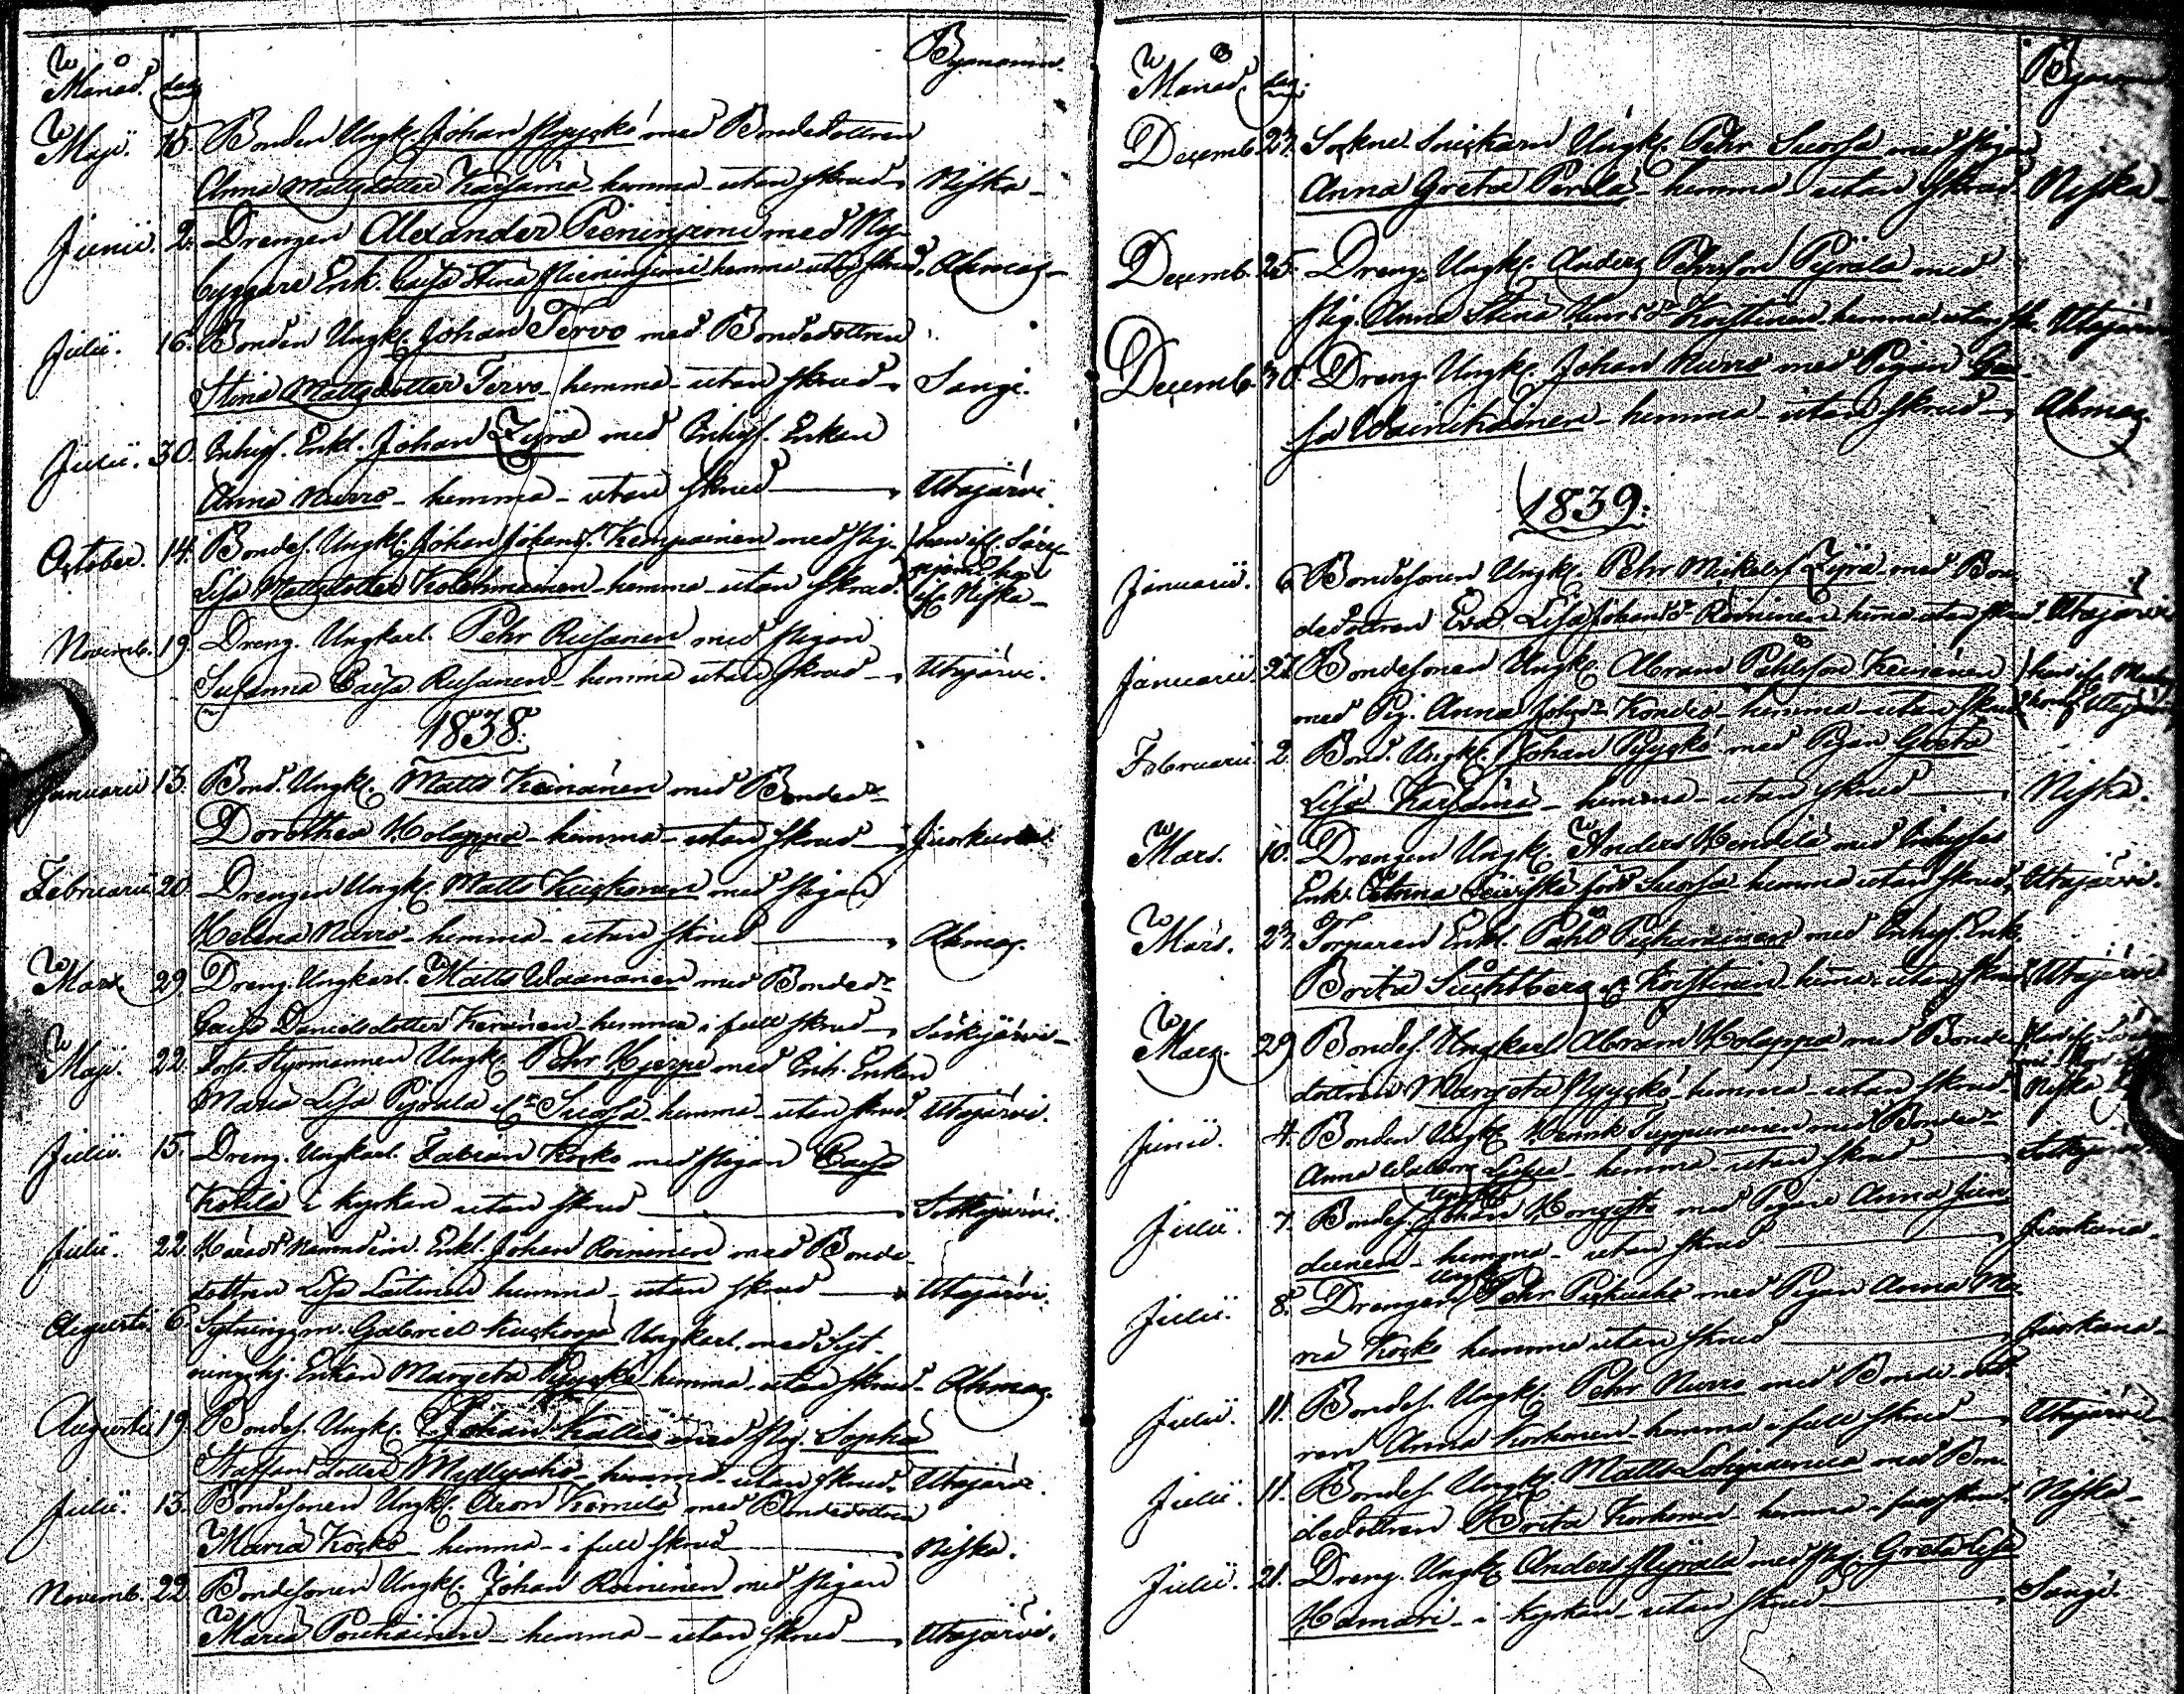 Månad. dag Byanamn.
Maji. 15. Bonden Ungk. Johan Pyyckö med Bondedottren
Anna Mattsdotter Karsama hemma utan skrud Niska
Junii. 2. Drengen Alexander Pieniniemi med Ny-
byggare Enk. Caisa Stina Pieniniemi hemma utan skrud. Ahmas
Julii. 16. Bonden Ungk. Johan Tervo med Bondedottren
Stina Mattsdotter Tervo hemma utan skrud Sangi.
Julii. 30. Inhys. Enkl. Johan Zyrä med Inhys. Enkan
Anna Nurro hemma utan skrud Utajärvi.
October. 14. Bondes. Ungk. Johan Johans. Kemppainen med Pig.
Lisa Mattsdotter Kolehmainen hemma utan skrud. Niska
Novemb. 19. Dreng. Ungkarl. Pehr Rusanen med Pigan
Susanna Caisa Rusanen hemma utan skrud Utajärvi.
1838.
Januarii 13. Bond. Ungk. Matts Keinänen med Bondedr
Dorothea Holappa hemma utan skrud Juorkuna
Februarii 20. Drengen Ungk. Matts Kuckonen med Pigan
Helena Nurro hemma utan skrud Ahmas.
Mars 29. Dreng. Ungkarl. Matts Waananen med Bondedr
Caisa Danielsdotter Keränen hemma i full skrud Särkijärvi
Maji. 22. Fors. Styrmannen Ungk. Pehr Hjerpe med Inh. Enkan
Maria Lisa Pyrälä Suorsa hemma utan skrud Utajärvi.
Julii. 15. Dreng. Ungkarl. Fabian Kocko med Pigan Caisa
Kotila i kyrkan utan skrud Sotkajärvi.
Julii. 22. Härads Nämndem. Enkl. Johan Roininen med Bonde
dottren Lisa Laitinen hemma utan skrud Utajärvi.
Augusti 6. Sytningsm. Gabriel Kuckonen Ungkarl. med Syt-
ningshj. Enkan Margeta Pyyckö hemma utan skrud Ahmas.
Augusti 19. Bondes. Ungk. Johan Kallio med Pig. Sophia
Staffansdotter Myllyaho hemma utan skrud Utajärvi.
Julii. 13. Bondesonen Ungk. Aron Kemilä med Bondedottren
Maria Kocko hemma i full skrud Niska.
Novemb. 22. Bondesonen Ungk. Johan Roininen med Pigan
Maria Pouhainen hemma utan skrud Utajärvi.
Månad. dag.
Decemb. 27. Sockne Snickarn Ungk. Pehr Suorsa med Pigan
Anna Greta Perälä hemma utan skrud. Niska
Decemb. 25. Dreng. Ungk. Anders Pehrsson Pyrälä med
Pig. Anna Stina Korstinen hemma utan Utajärvi
Decemb. 30. Dreng. Ungk. Johan Nurro med Pigan
sa Wainikainen hemma utan skrud Ahmas
1839.
Januarii. 6. Bondesonen Ungk. Pehr Mickels Zyrä med Bon
dedottren Eva Lisa Johansdr Roininen hemma utan skrud. Utajärvi
Januarii. 27. Bondesonen Ungk. Abram Påhlsson Keinänen
med Pig. Anna Kondio hemma utan skrud
Februarii 2. Bond. Ungk. Johan Pyyckö med Pigan Greta
Lisa Karsama hemma utan skrud Niska.
Mars. 10. Drengen Ungk. Anders Hendilä med Inhyses
Enk. född Suorsa hemma utan skrud. Utajärvi.
Mars. 27. Torparen Enkl. Påhl med Inhys. Enk.
Brita Korstinen hemma utan skrud Utajärvi
Mars. 29. Bondes. Ungkarl Abram Holappa med Bonde
dottren Margeta Pyyckö hemma utan skrud Niska
Junii. 4. Bonden Ungk. Henrik Suppurainen med Bondedr
Anna hemma utan skrud
Julii. 7. Bondes. Ungk. Johan Hongisto med Pigan Anna Jun
dunen hemma utan skrud Juorkuna
Julii. 8. Drengen Ungk. Pehr med Pigan Anna Ma
ria Kocko hemma utan skrud Juorkuna
Julii. 11. Bondes. Ungk. Pehr Nurro med Bonde dott
ren Anna Korhonen hemma i full skrud Utajärvi
Julii. 11. Bondes. Ungk. Matts med Bon
dedottren Brita Korhonen hemma i full skrud. Niska
Julii. 21. Dreng. Ungk. Anders Pyrälä med Pig. Greta Lisa
Hamari i kyrkan utan skrud Sangi.